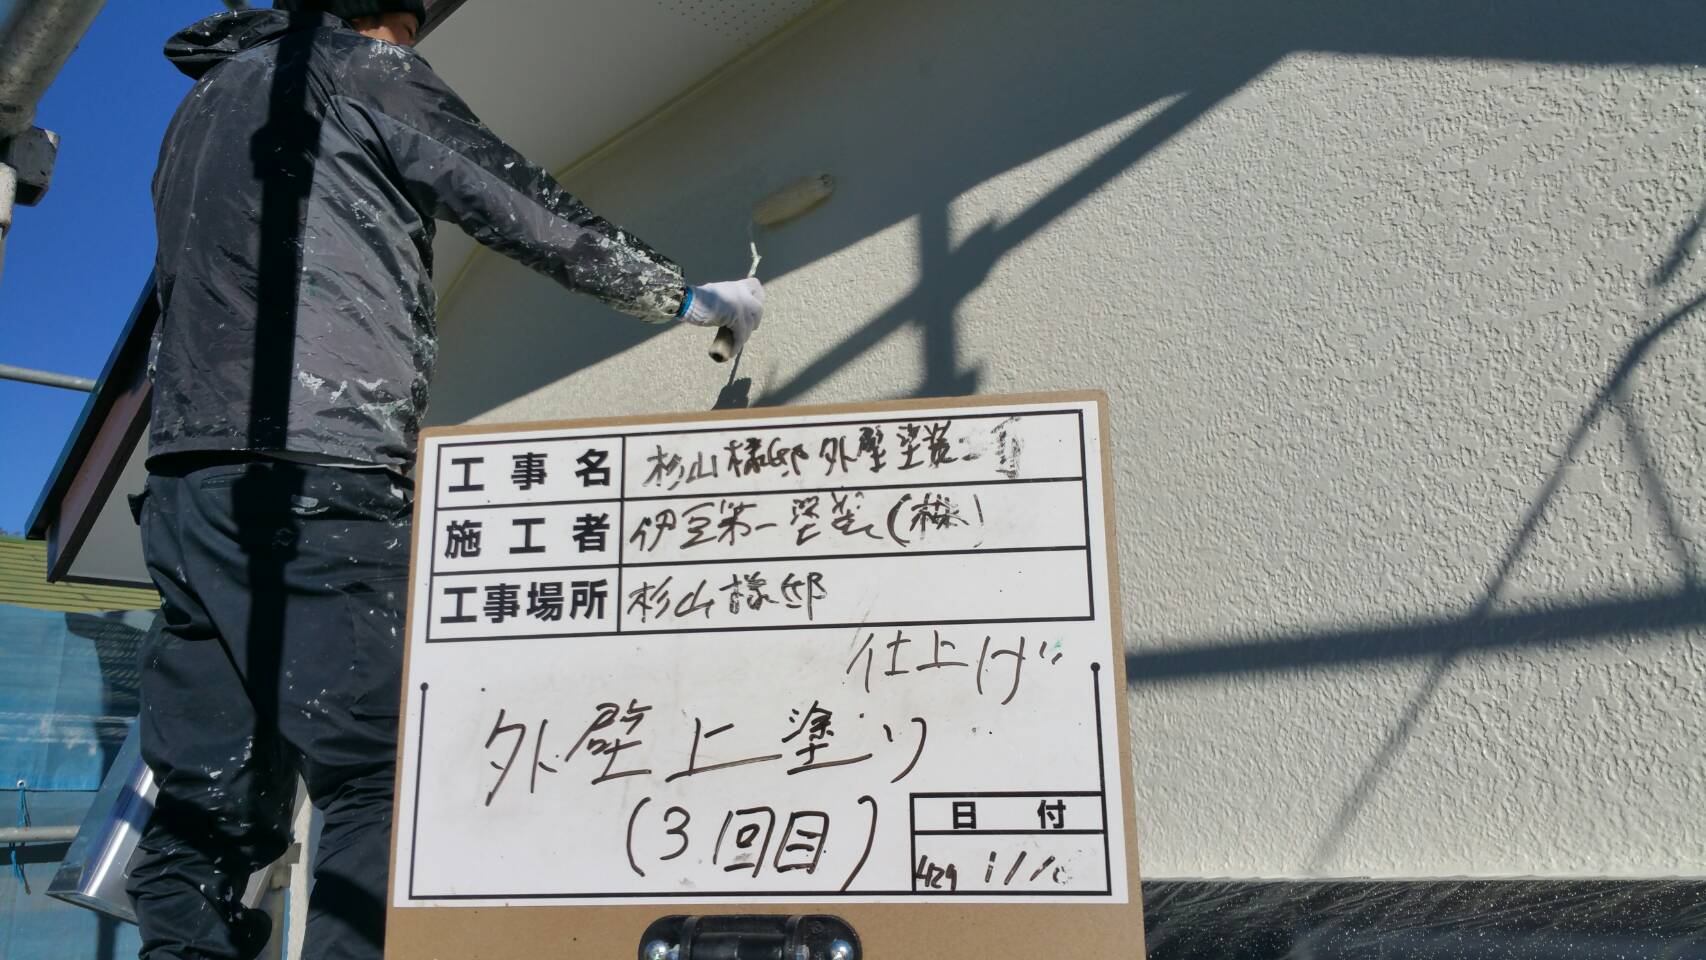 工事名 杉山様邸外壁塗装工
施工者 伊豆第一塗装(株)
工事場所 杉山様邸
仕上げ
外壁上塗り
(3回目)
日付
H29 1/